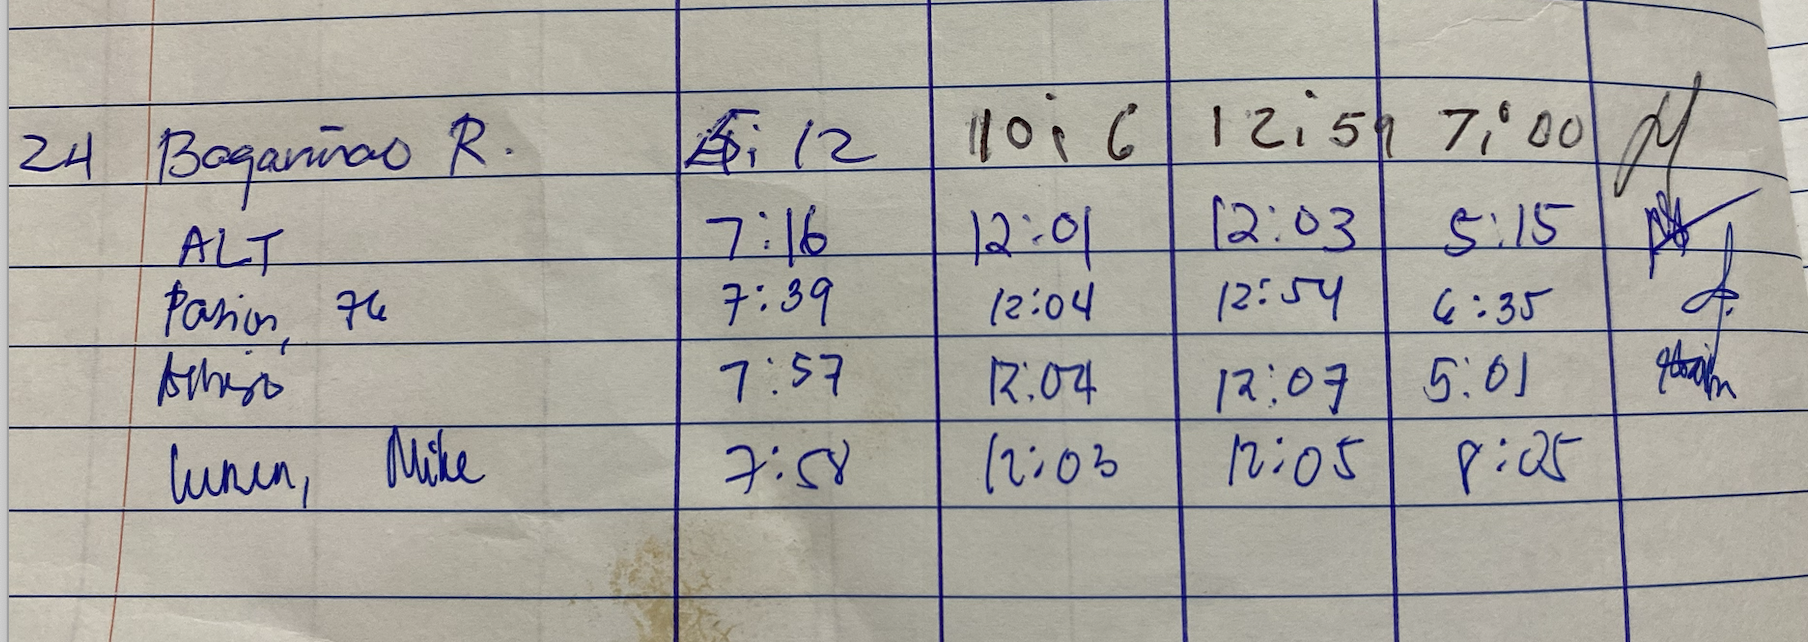 24 Bagarinao R. 12 10:6 12:59 7:00
ALT 7:16 12:01 12:03 5:15
7:39 12:04 12:54 6:35
7:57 12:04 12:07 5:01
Mike 7:58 12:03 12:05 8:25